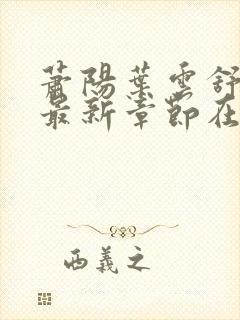 萧陽葉雲舒
最新章節在
西義之